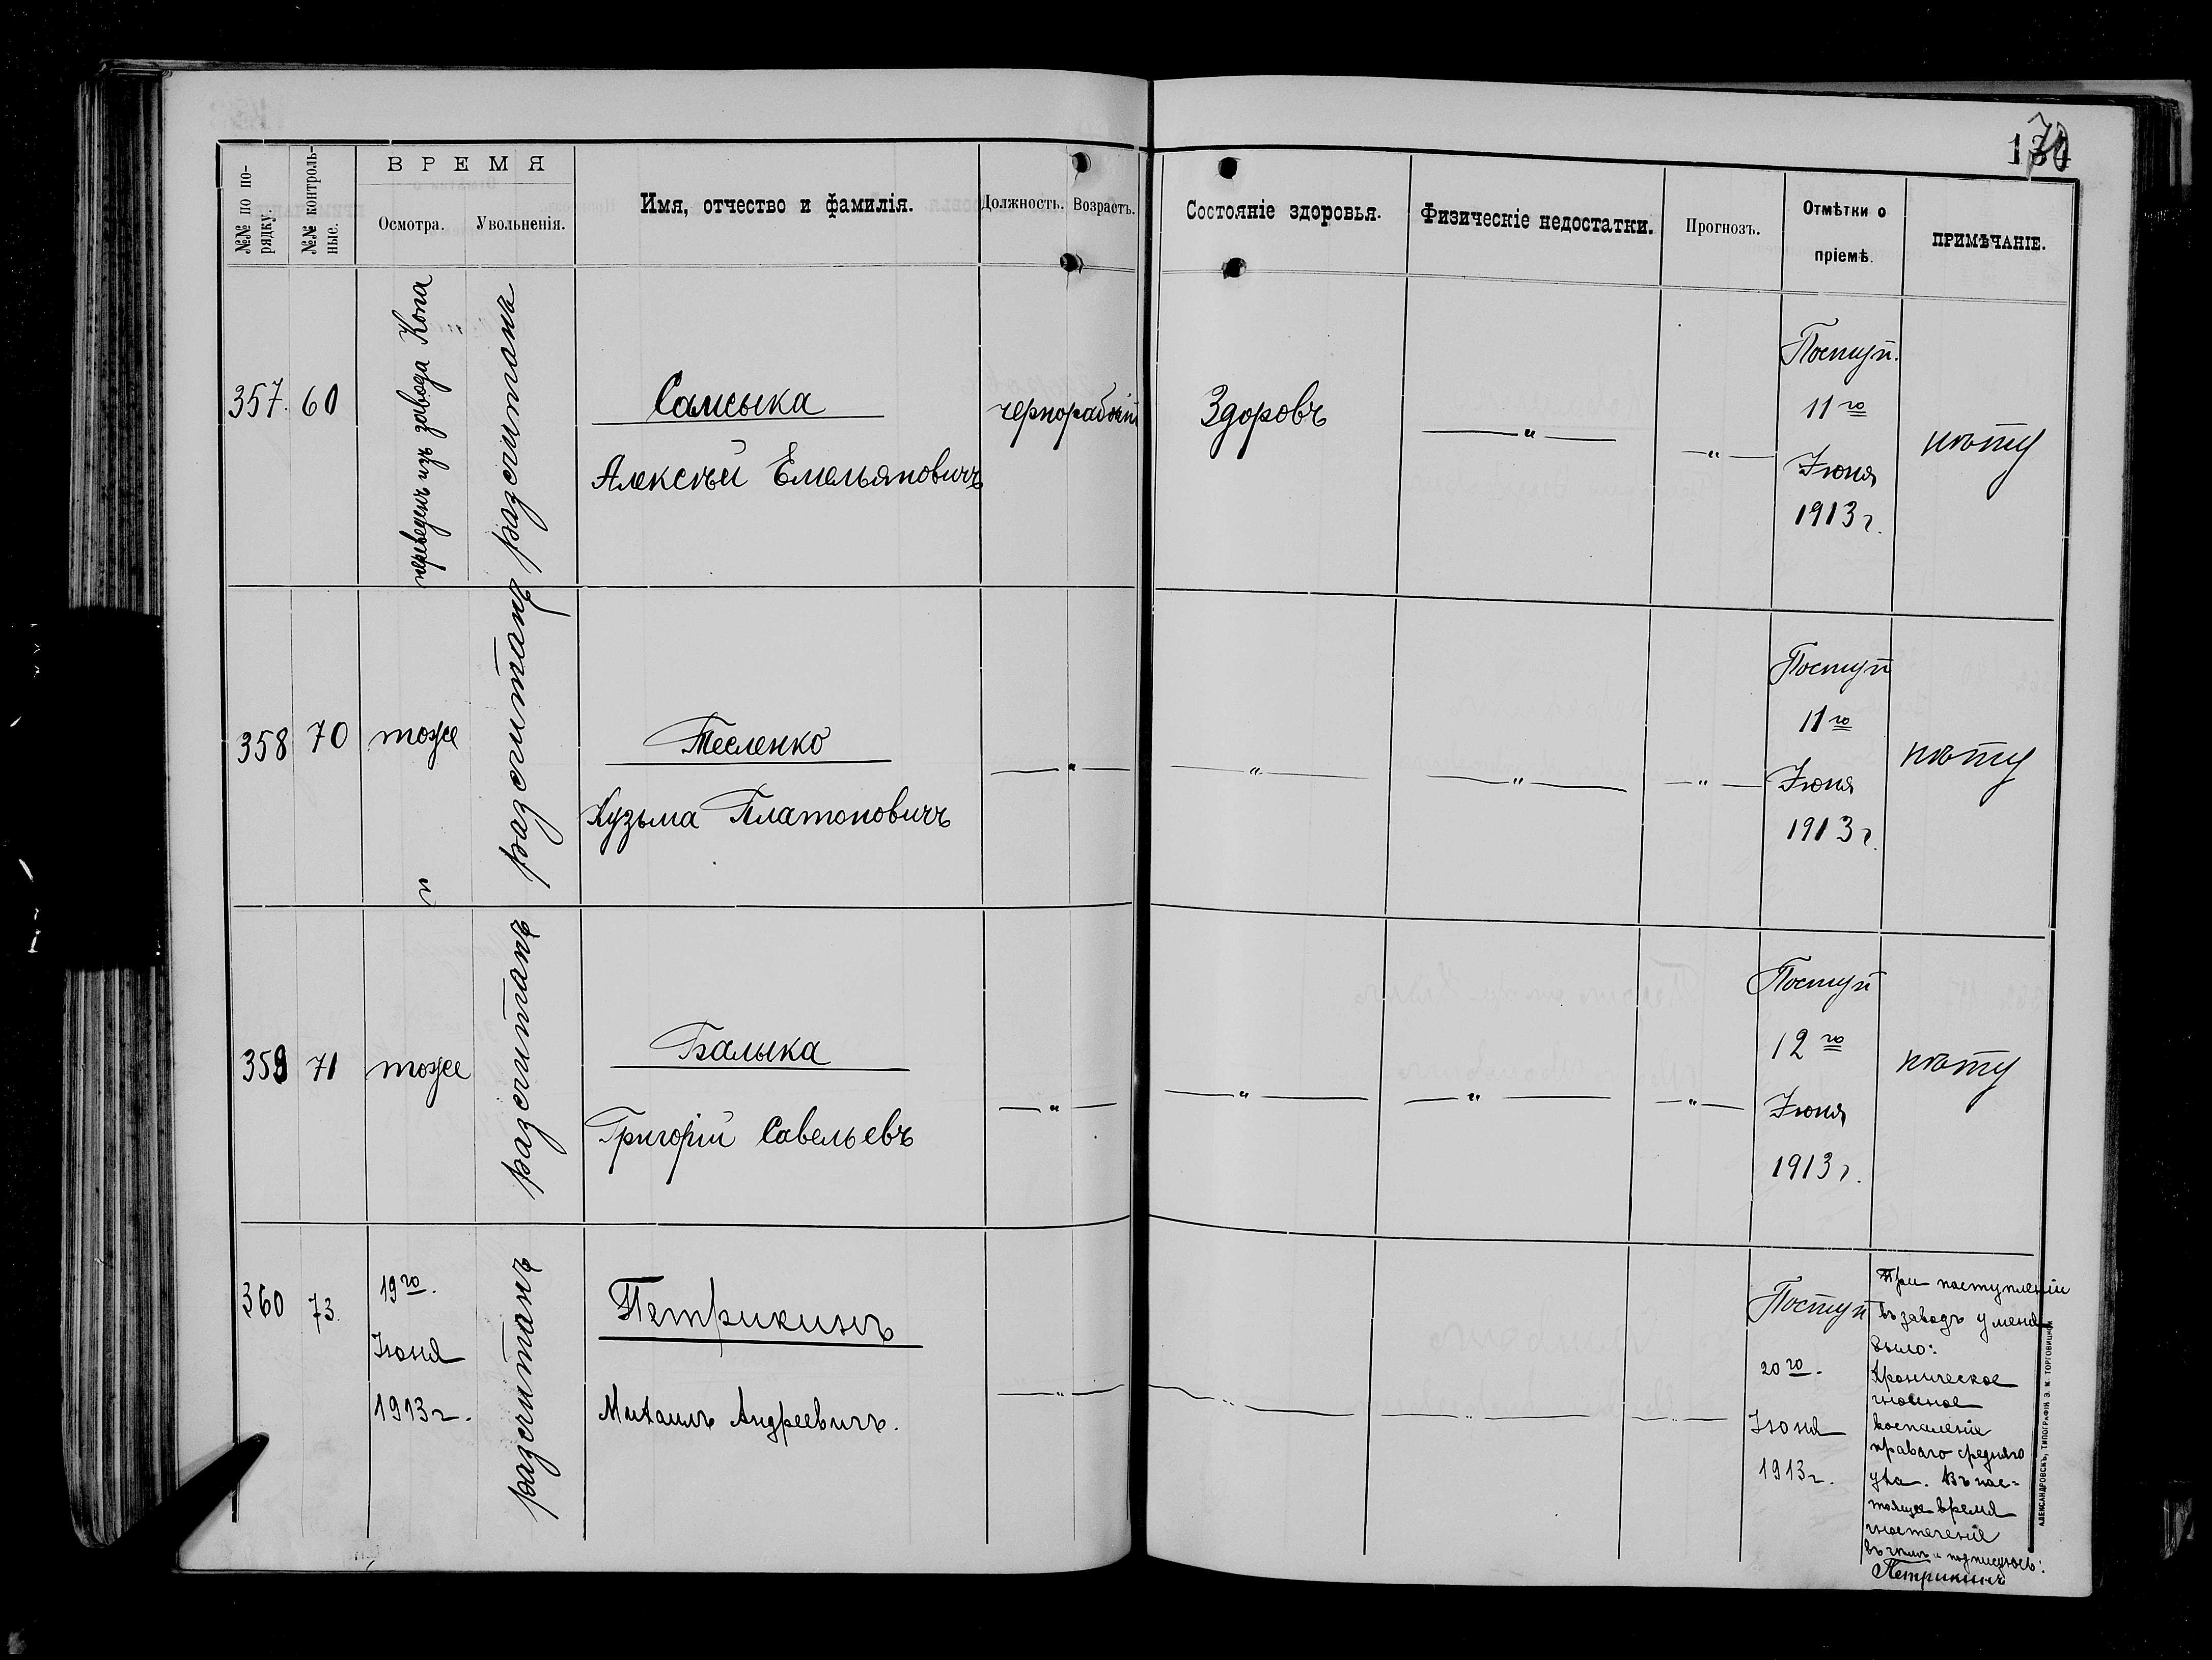 ВРЕМЯ
№№ по по-
рядку.
№№ контроль-
ные.
Осмотра.
Увольненія.
Имя, отчество и фамилія.
Должность.
Возрастъ.
Состояніе здоровья.
Физическіе недостатки.
Прогнозъ.
Отмѣтки о
пріемѣ.
ПРИМѢЧАНІЕ.
357. 60
переведенъ изъ завода Копа
разсчитанъ
Самсыка
Алексѣй Емельяновичъ
чернорабочій
Здоровъ
— „ —
— „ —
Поступ.
11го
Іюня
1913 г.
нѣту
358 70
тоже
„
разсчитанъ
Тесленко
Кузьма Платоновичъ
— „ —
— „ —
— „ —
— „ —
Поступ
11го
Іюня
1913 г.
нѣту
359 71
тоже
разсчитанъ
Балыка
Григорій Савельевъ
— „ —
— „ —
— „ —
— „ —
Поступ
12го
Іюня
1913 г.
нѣту
360 73.
19го.
Іюня
1913 г.
разсчитанъ
Петрикинъ
Михаилъ Андреевичъ.
— „ —
— „ —
— „ —
— „ —
Поступ
20го.
Іюня
1913 г.
При поступленіи
въ заводъ у меня
было:
Хроническое
гнойное
воспаленіе
праваго средняго
уха. Въ нас-
тоящее время
гноетеченіе
въ чемъ и подписуюсь:
Петрикинъ
АЛЕКСАНДРОВСКЪ, ТИПОГРАФІЯ Э. М. ТОРГОВИЦКОЙ